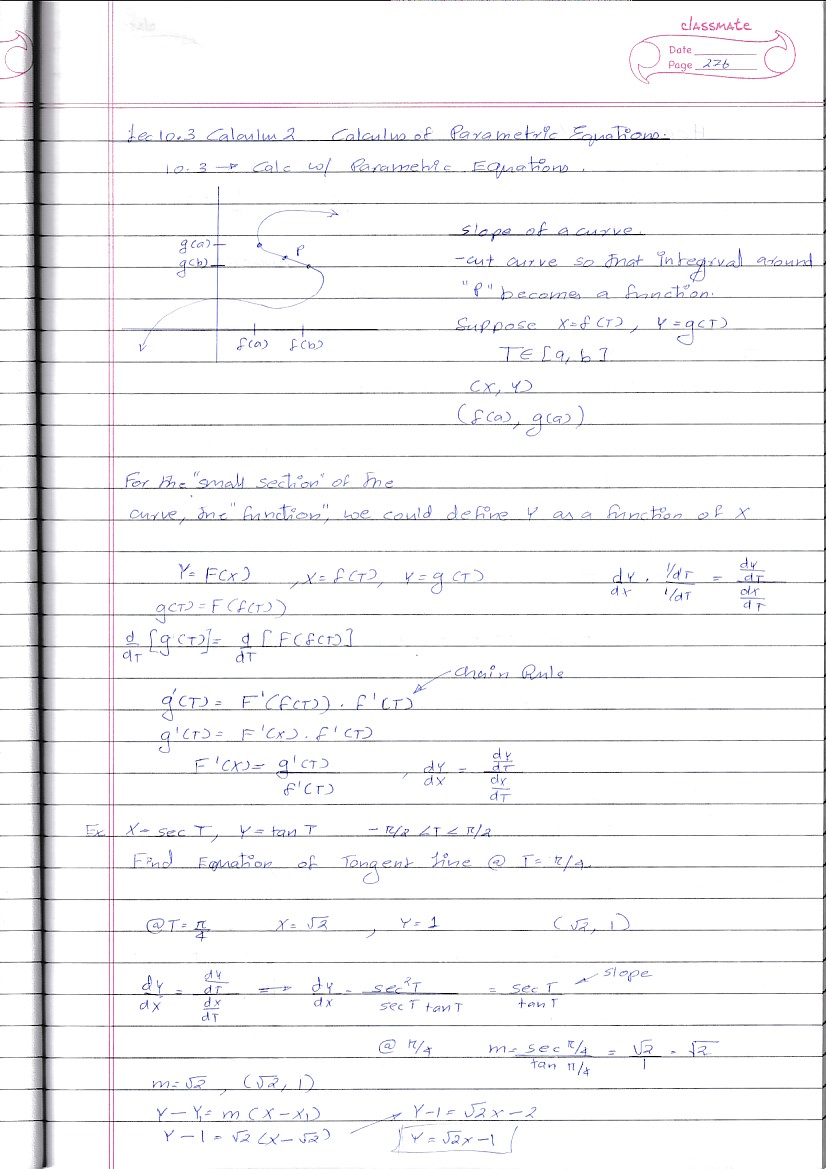 classmate
Date
Page 226
Lec 10.3 Calculus 2 Calculus of Parametric Equations.
10.3 → Calc w/ Parametric Equations.
g(a)
g(b)
P
f(a) f(b)
slope of a curve.
-cut curve so that integrval around
"P" becomes a function.
Suppose X=f(T), Y=g(T)
T∈[a,b]
(X, Y)
(f(a), g(a))
For the "small section" of the
curve, the "function", we could define Y as a function of X
Y=F(X) , X=f(T), Y=g(T)
dy/dx · (1/dT)/(1/dT) = (dy/dT)/(dx/dT)
g(T)=F(f(T))
d/dT [g(T)]= d/dT [F(f(T)]
chain Rule
g'(T)= F'(f(T)) · f'(T)
g'(T)= F'(X) · f'(T)
F'(X)= g'(T)/f'(T) , dy/dx = (dy/dT)/(dx/dT)
Ex X=sec T, Y=tan T -π/2 <T< π/2
Find Equation of Tangent Line @ T= π/4.
@T=π/4 X=√2 , Y=1 (√2, 1)
dy/dx = (dy/dT)/(dx/dT) ⟹ dy/dx = sec²T/(sec T tan T) = sec T/tan T
slope
@ π/4 m= sec π/4 / tan π/4 = √2/1 = √2
m=√2 , (√2, 1)
Y-Y₁= m(X-X₁) Y-1=√2x-2
Y-1=√2(X-√2) Y=√2x-1